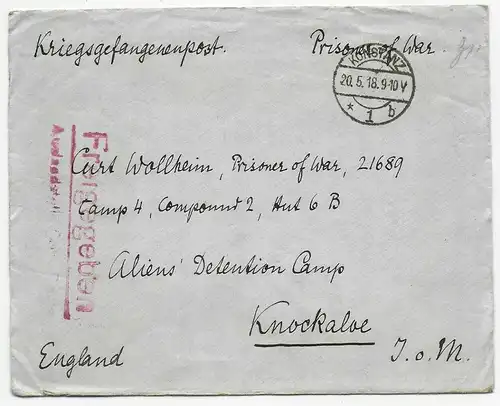 Kriegsgefangenenpost. Prisoner of War.
KONSTANZ
20.5.18.9-10V
* 1 b
Freigegeben
Curt Wollheim, Prisoner of War, 21689
Camp 4, Compound 2, Hut 6 B
Aliens' Detention Camp
Knockaloe
England
I.o.M.